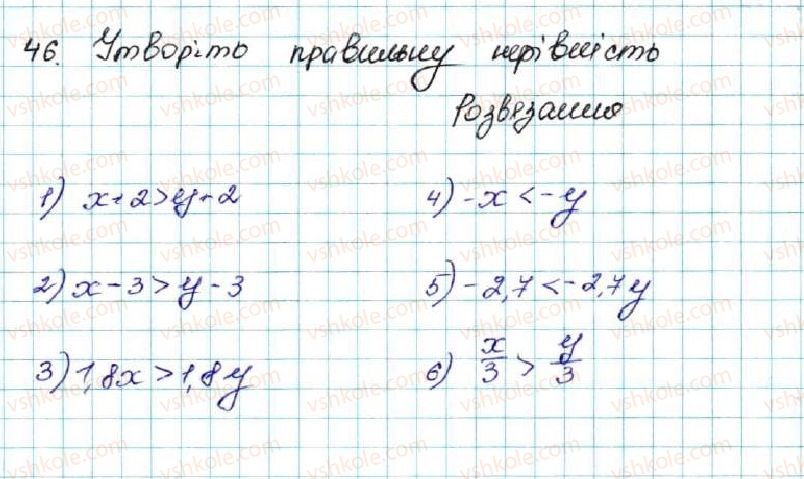 46. Утворіть правильну нерівність
Розвязання
1) x+2>y+2
2) x-3>y-3
3) 1,8x>1,8y
4) -x<-y
5) -2,7<-2,7y
6) x/3 > y/3
vshkole.com